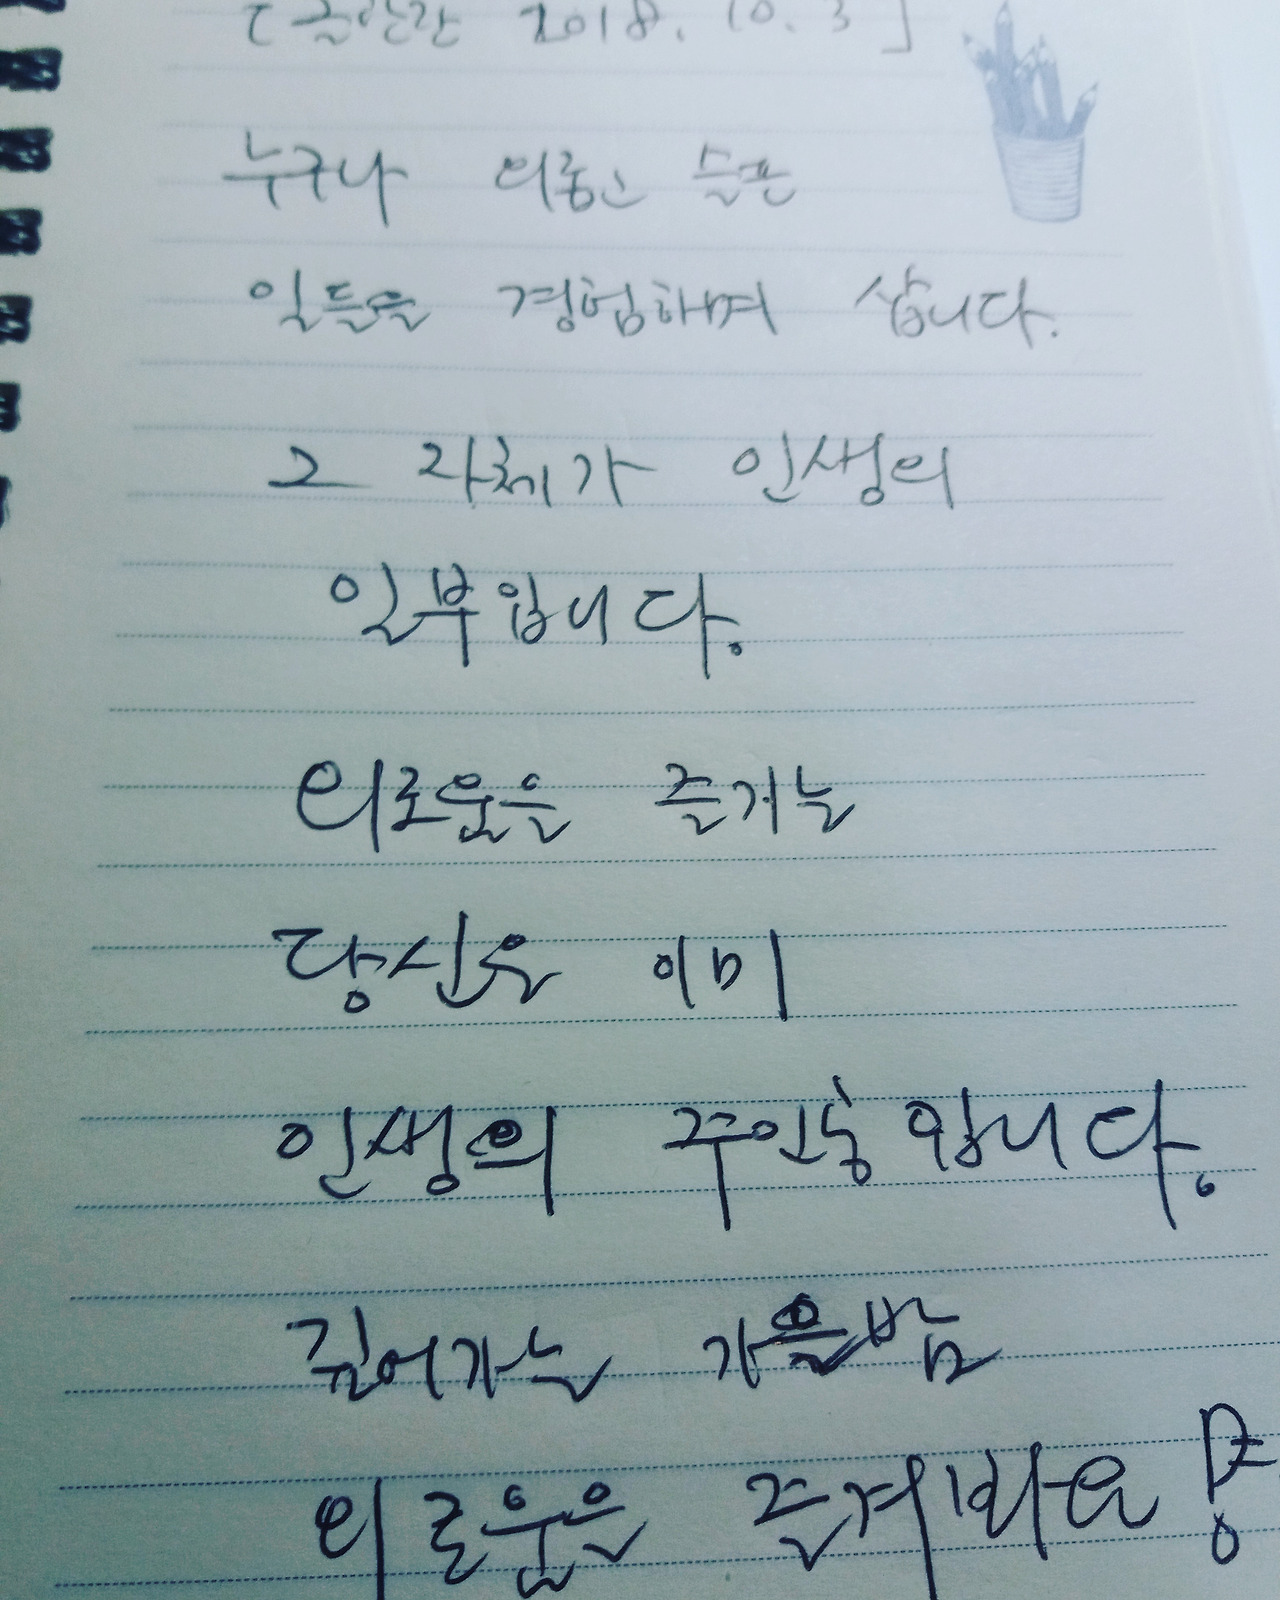 [글안간 2018. 10. 3]
누구나 외롭고 슬픈
일들을 경험하며 삽니다.
그 자체가 인생의
일부입니다.
외로움을 즐기는
당신은 이미
인생의 주인공입니다.
깊어가는 가을밤
외로움을 즐겨봐요!